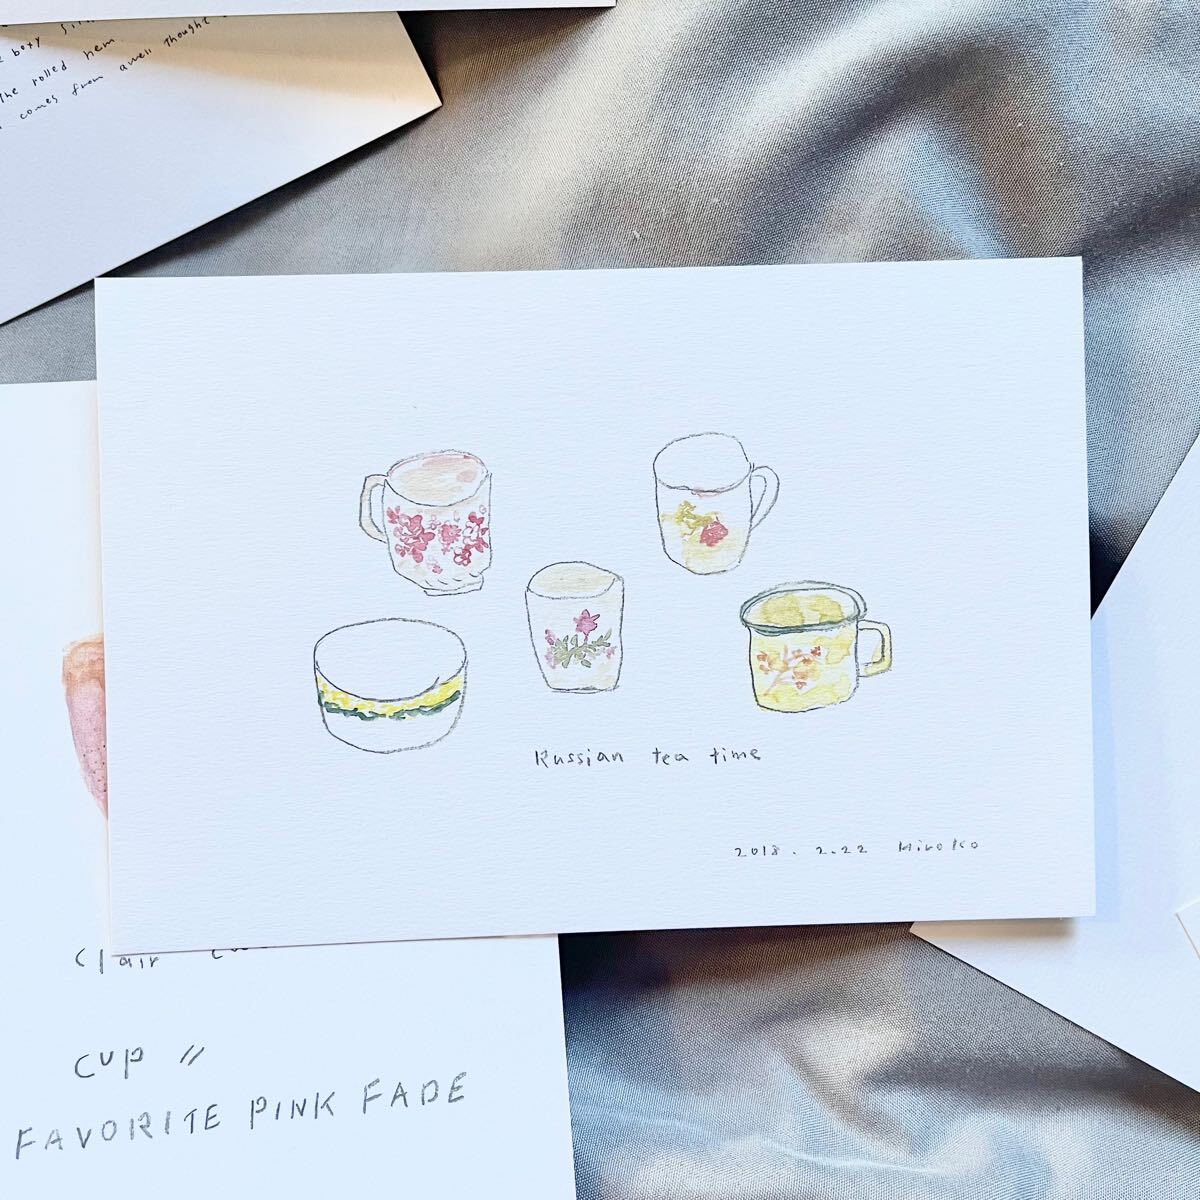 boxy
the rolled hem
comes from a well thought
Russian tea time
2018. 2.22 Hiroko
clair
cup "
FAVORITE PINK FADE